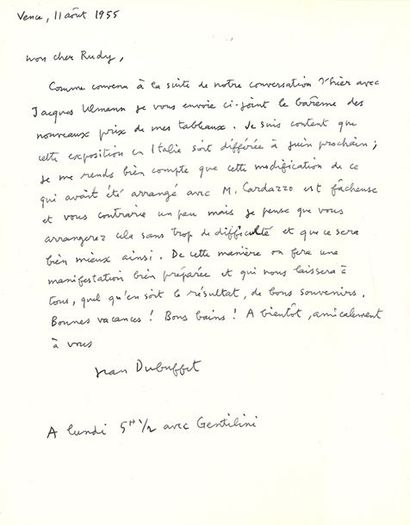 Vence, 11 août 1955
mon cher Rudy,
Comme convenu à la suite de notre conversation d'hier avec
Jacques Ulmann je vous envoie ci-joint le barême des
nouveaux prix de mes tableaux. Je suis content que
cette exposition en Italie soit différée à juin prochain ;
je me rends bien compte que cette modification de ce
qui avait été arrangé avec M. Cardazzo est fâcheuse
et vous contrarie un peu mais je pense que vous
arrangerez cela sans trop de difficulté et que ce sera
bien mieux ainsi. De cette manière on fera une
manifestation bien préparée et qui nous laissera à
tous, quel qu'en soit le résultat, de bons souvenirs.
Bonnes vacances ! Bons bains ! A bientôt, amicalement
à vous
Jean Dubuffet
A lundi 5H 1/2 avec Gentilini